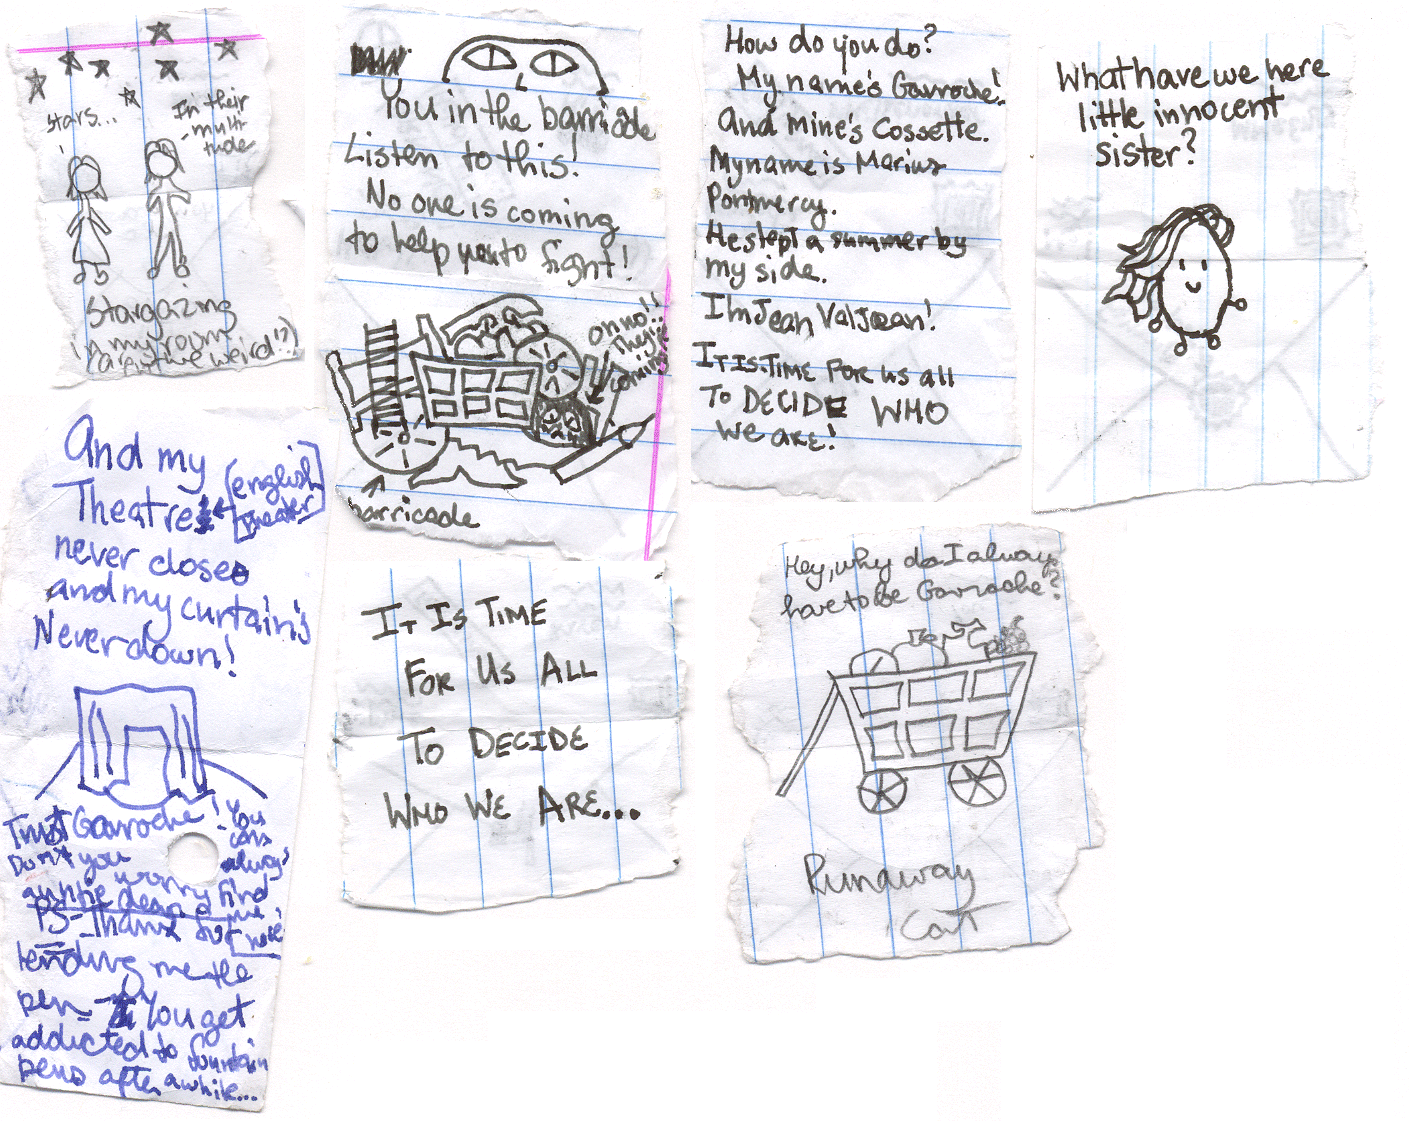 stars...
In their
multi-
tude
Stargazing
in my room
You in the barricade
Listen to this!
No one is coming
to help you to fight!
oh no!!
They're
coming!
barricade
How do you do?
My name's Gavroche!
And Mine's Cossette.
My name is Marius
Pontmercy.
He slept a summer by
my side.
I'm Jean Valjean!
IT IS TIME FOR us all
TO DECIDE WHO
WE ARE!
What have we here
little innocent
sister?
And my
Theatre ← [english
theater]
never closes
and my curtain's
Never down!
Trust Gavroche!
Don't you
worry
auntie dear
You
can
always
find
me
here!
PS- Thanx for
lending me the
pen - You get
addicted to fountain
pens after awhile...
IT IS TIME
FOR US ALL
TO DECIDE
WHO WE ARE...
Hey, why do I always
have to be Gavroche?
Runaway
Cart